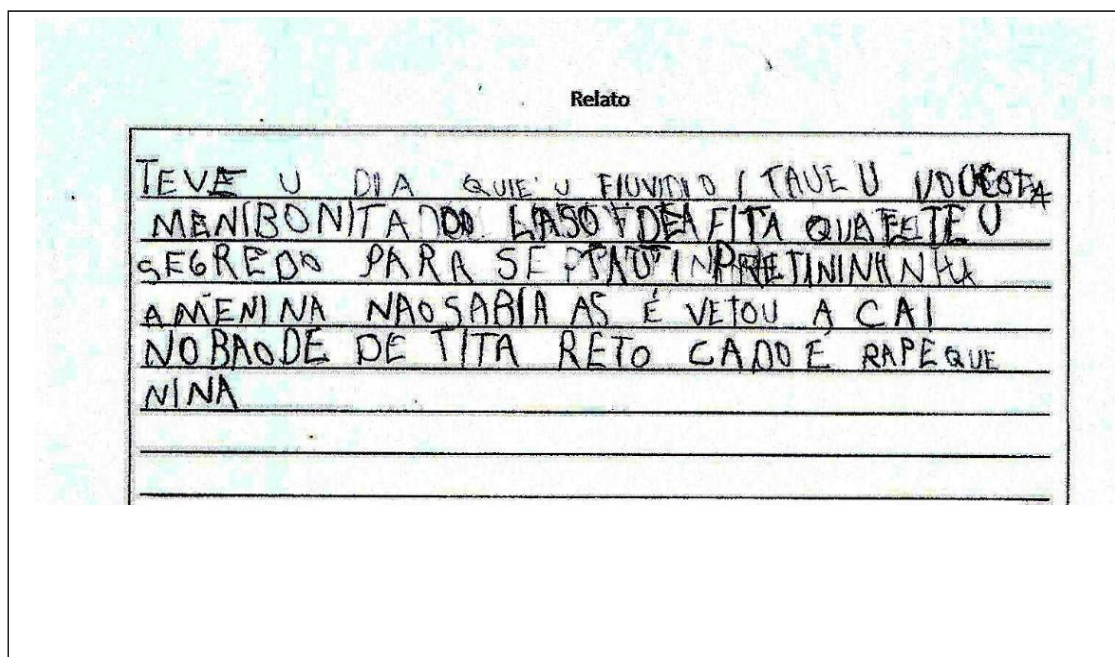 Relato
TEVE U DIA QUIE U TAVE U
MENIBONITA DO LASO DEA FITA QUAE TE U
SEGREDO PARA SE TAU IN PRETININHA
A MENINA NAO SABIA AS É VETOU A CAI
NO BAODE DE TITA RETO CADO E RAPEQUE
NINA